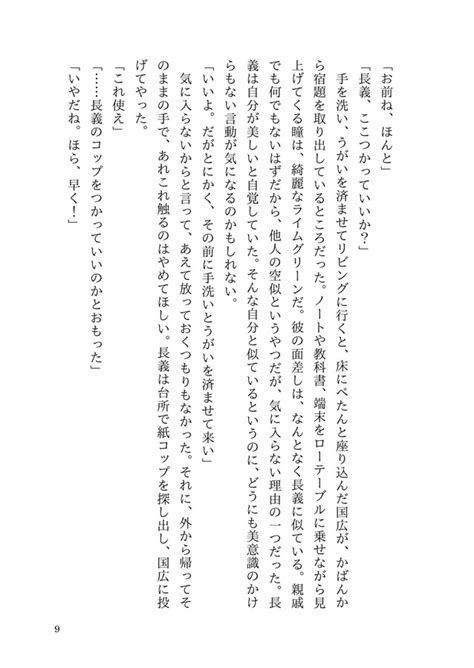 「お前ね、ほんと」
「長義、ここつかっていいか？」
　手を洗い、うがいを済ませてリビングに行くと、床にぺたんと座り込んだ国広が、かばんか
ら宿題を取り出しているところだった。ノートや教科書、端末をローテーブルに乗せながら見
上げてくる瞳は、綺麗なライムグリーンだ。彼の面差しは、なんとなく長義に似ている。親戚
でも何でもないはずだから、他人の空似というやつだが、気に入らない理由の一つだった。長
義は自分が美しいと自覚していた。そんな自分と似ているというのに、どうにも美意識のかけ
らもない言動が気になるのかもしれない。
「いいよ。だがとにかく、その前に手洗いとうがいを済ませて来い」
　気に入らないからと言って、あえて放っておくつもりもなかった。それに、外から帰ってそ
のままの手で、あれこれ触るのはやめてほしい。長義は台所で紙コップを探し出し、国広に投
げてやった。
「これ使え」
「……長義のコップをつかっていいのかとおもった」
「いやだね。ほら、早く！」
9